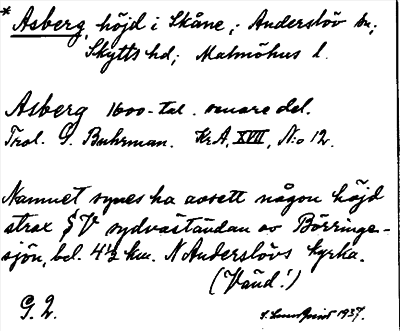 * Asberg, höjd i Skåne; Anderslöv sn;
Skytts hd; Malmöhus l.
Asberg 1600-tal. senare del.
Trol. G. Buhrman. Kr.A, XVII, N:o 12.
Namnet synes ha avsett någon höjd
strax SV sydväständan av Börringe-
sjön, bel. 4½ km. N Anderslövs kyrka.
(Vänd!)
G. 2.
1937.